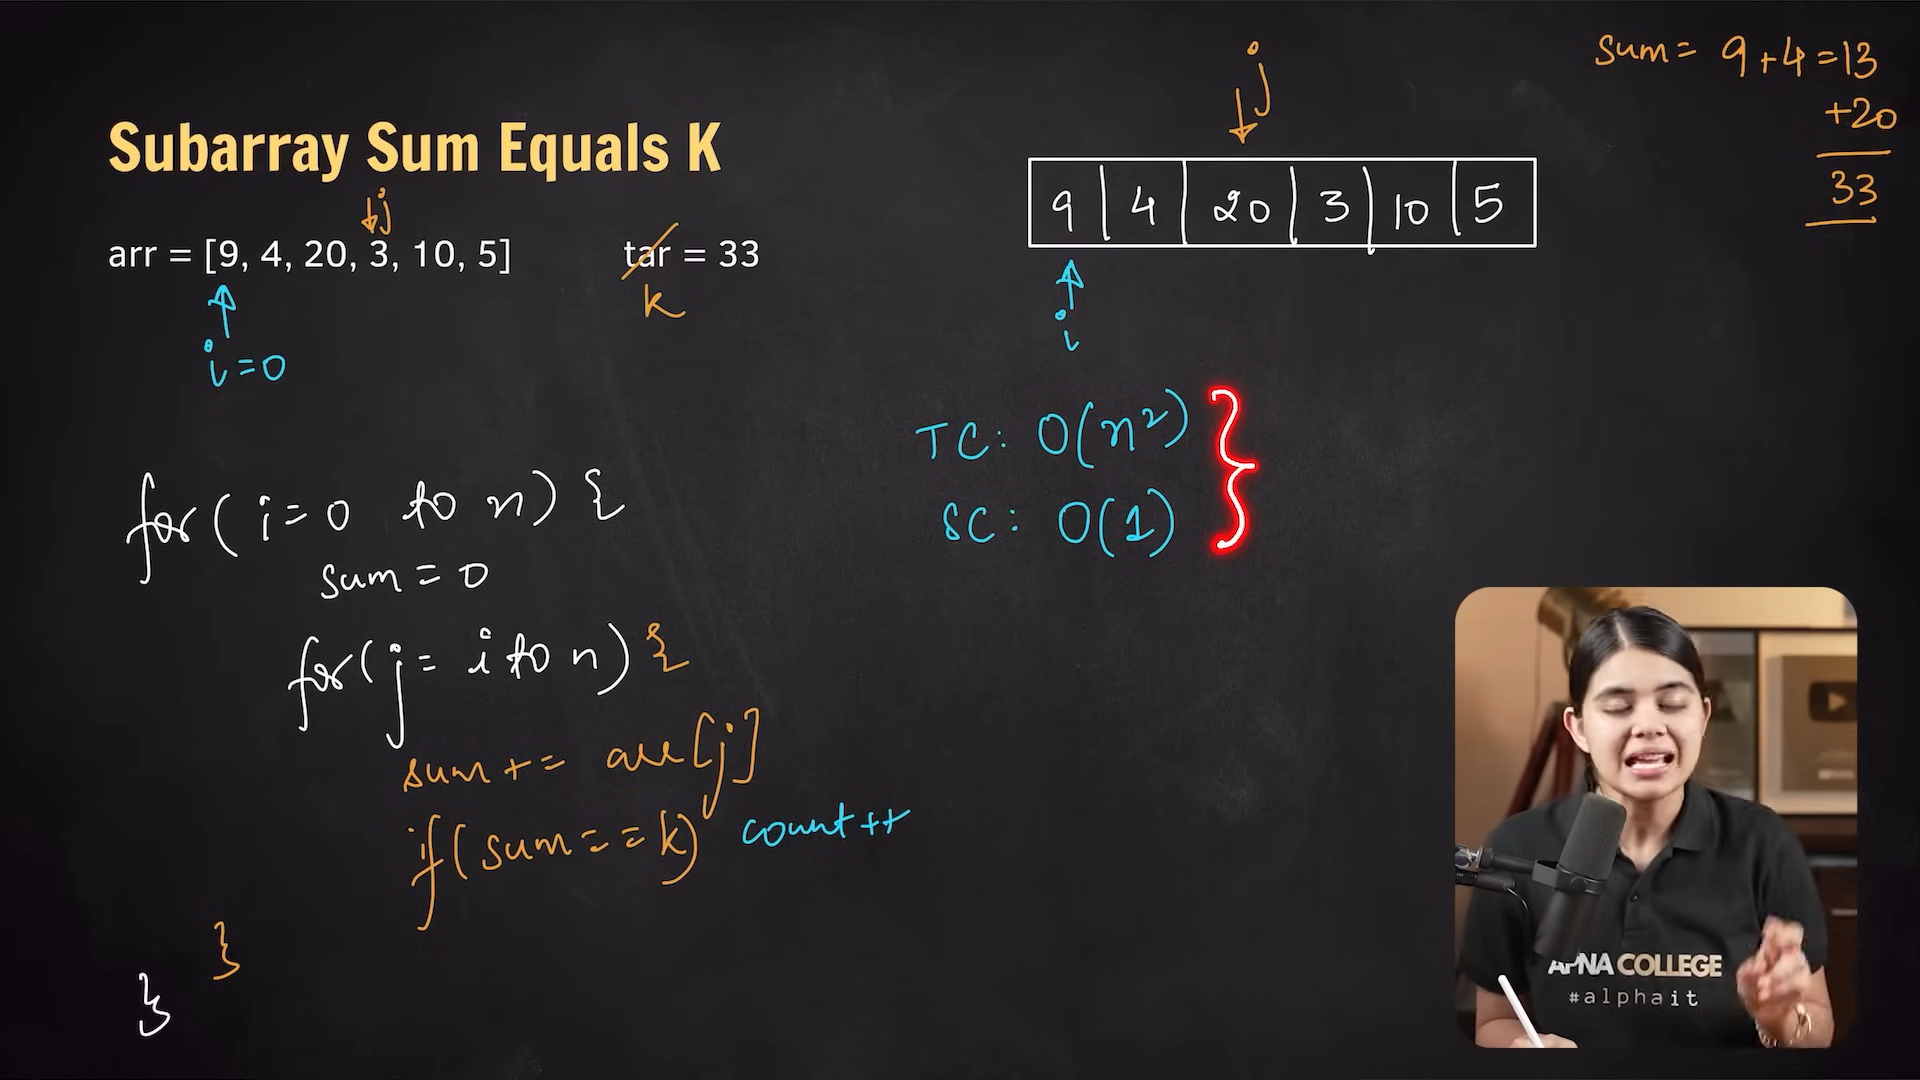 Subarray Sum Equals K
j
arr = [9, 4, 20, 3, 10, 5]
tar = 33
k
i=0
for( i=0 to n) {
sum = 0
for(j= i to n) {
sum += arr[j]
if(sum==k) count++
}
}
j
9 4 20 3 10 5
i
sum= 9+4=13
+20
33
TC: O(n²)
SC: O(1)
APNA COLLEGE
#alphait